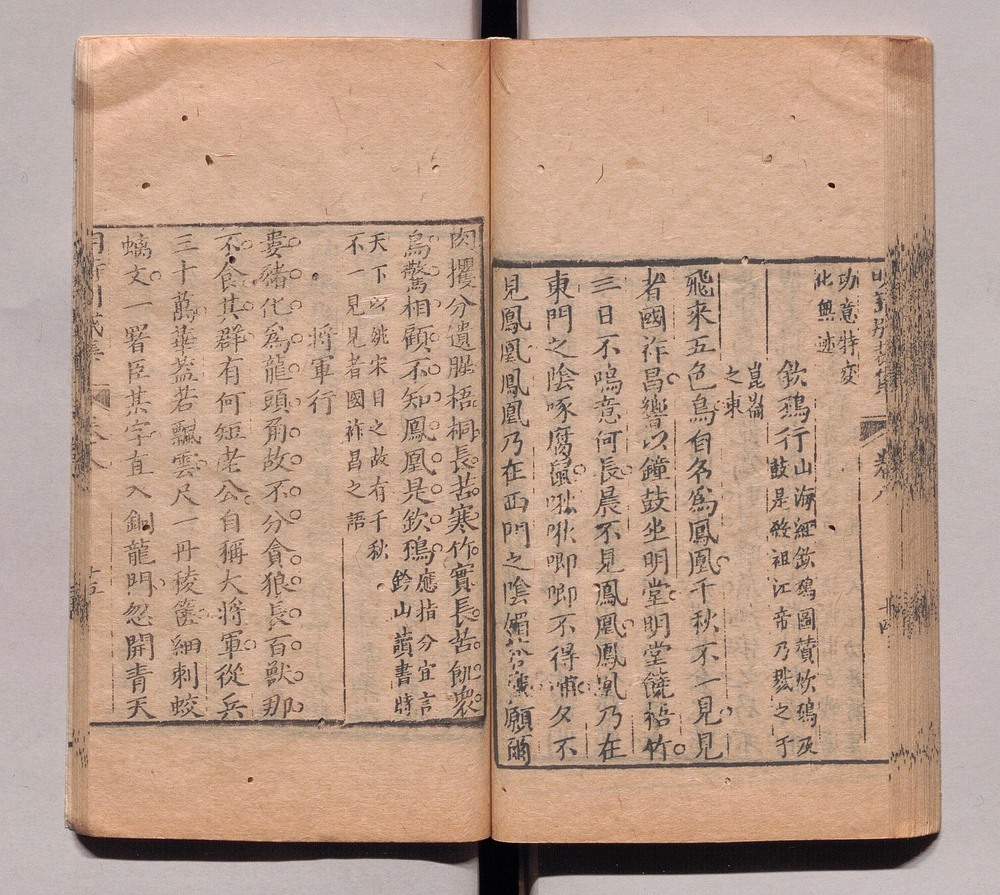 功意特変
化無迹
欽䲹行
山海經欽䲹圖賛欽䲹及
鼓是殺祖江帝乃戮之于
崑崙
之東
飛來五色鳥自名為鳳凰千秋不一見見
者國祚昌響以鐘鼓坐明堂明堂饒梧竹
三日不鳴意何長晨不見鳳凰鳳凰乃在
東門之陰啄腐鼠啾啾唧唧不得哺夕不
見鳳凰鳳凰乃在西門之陰媚蒼鷹願爾
卷八
肉攫分遺腥梧桐長苦寒竹實長苦飢衆
鳥驚相顧不知鳳凰是欽䲹
應指分宜言
鈐山讀書時
天下以姚宋目之故有千秋
不一見見者國祚昌之語
將軍行
婁豬化為龍頭角故不分貪狼長百獸那
不食其群有何短老公自稱大將軍從兵
三十萬華蓋若飄雲尺一丹稜簏細刺蛟
螭文一署臣某字直入銅龍門忽開青天
卷八
十五